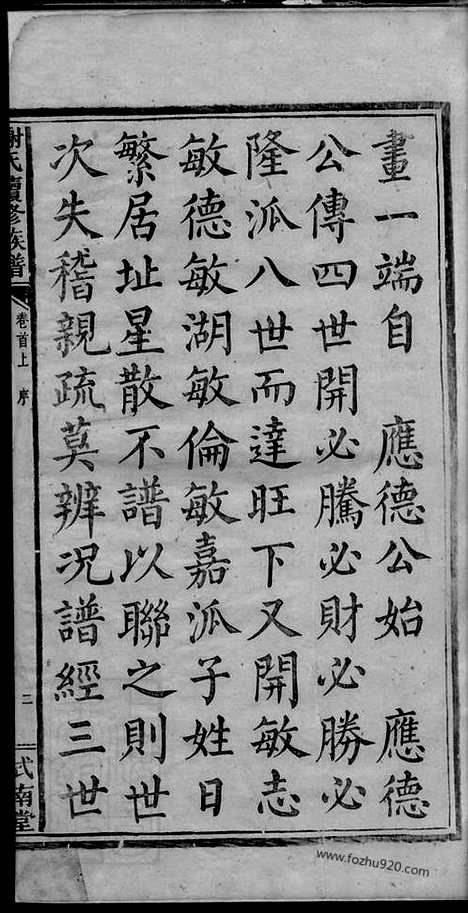 畫一端自　應德公始　應德
公傳四世開必騰必財必勝必
隆派八世而達旺下又開敏志
敏德敏湖敏倫敏嘉派子姓日
繁居址星散不譜以聯之則世
次失稽親疏莫辨况譜經三世
謝氏續修族譜
卷首上 序
二
式南堂
www.fozhu920.com